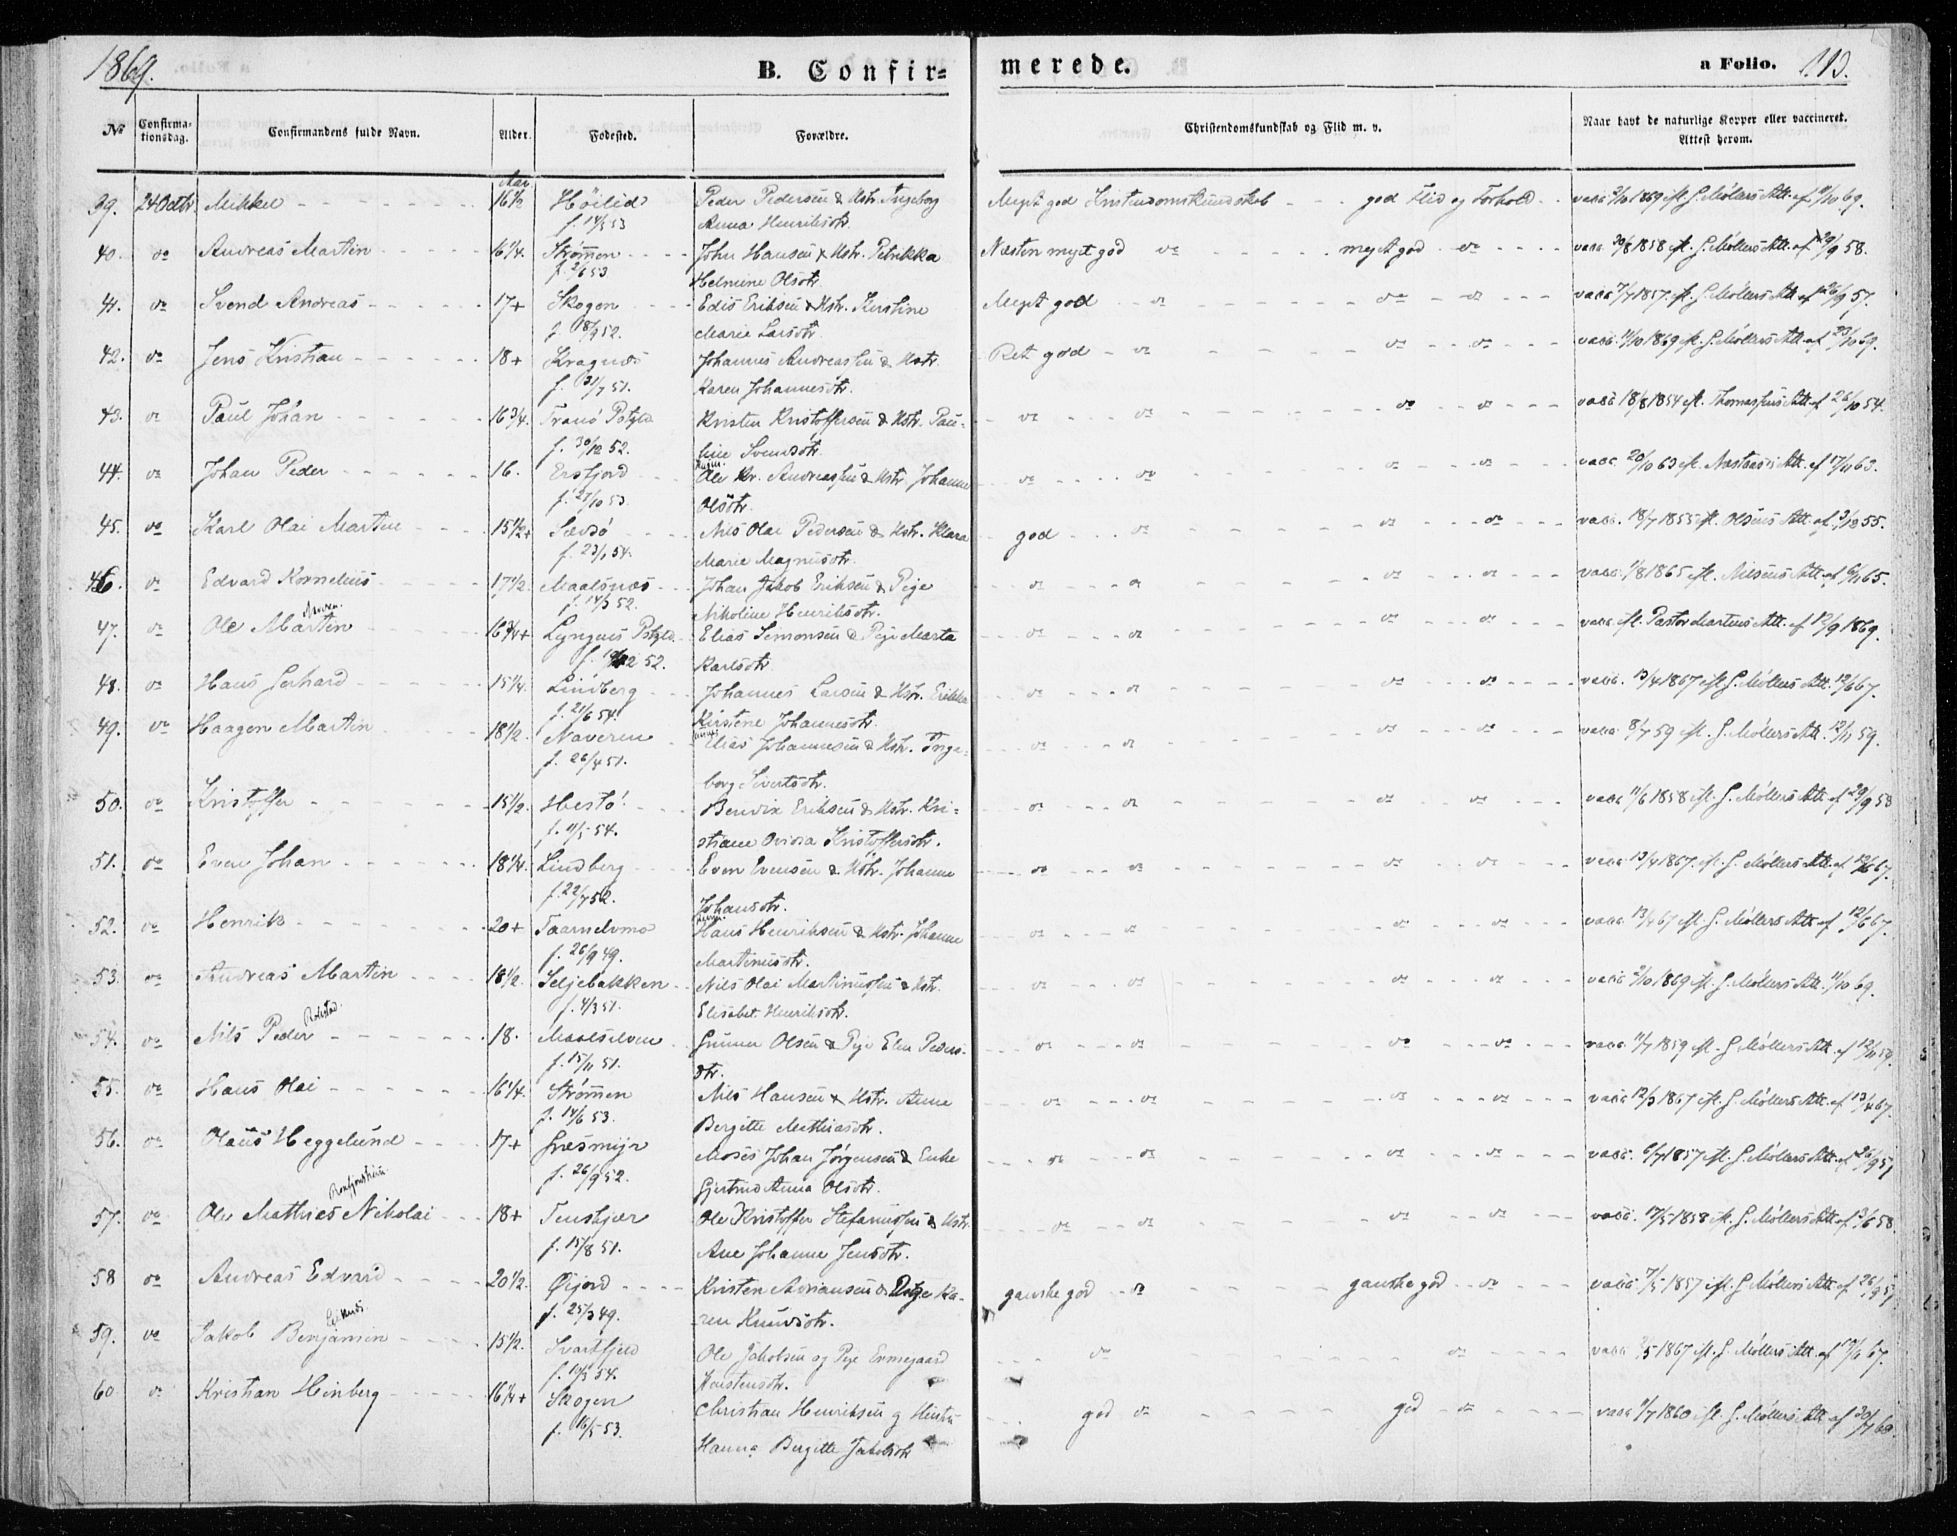 1869.
B. Confir-
merede.
a Folio. 113.
No
Confirma-
tionsdag.
Confirmandens fulde Navn.
Alder.
Fødested.
Forældre.
Christendomskundskab og Flid m. v.
Naar havt de naturlige Kopper eller vaccineret.
Attest herom.
39. 24 Octbr Mikkel 16½ Aar Höilid Peder Pedersen & Hstr. Ingeborg Meget god Kristendomskundskab god Flid og Forhold vacc 9/10 1869 ifl. G. Møllers Att. af 11/10 69.
f. 14/3 53 Anna Henriksdtr.
40. do Andreas Martin 16¼. Strømmen John Hansen & Hstr. Petrikka Næsten meget god do meget god do vacc. 30/8 1858 ifl. G. Møllers Att. af 29/9 58.
f. 2/6 53 Helmine Olsdtr
41. do Svend Andreas 17+ Skogen Edis Eriksen & Hstr. Kirstine Meget god do do do vacc 7/7 1857 ifl. G. Møllers Att. af 26/9 57.
f. 18/9 52. Marie Larsdtr
42. do Jens Kristian 18+ Kragnæs Johannes Andreassen & Hstr. Ret god do do do vacc. 11/10 1869 ifl. G. Møllers Att. af 23/10 69.
f. 31/7 51. Karen Johannesdtr.
43. do Paul Johan 16¾. Tranö Pstgld Kristen Kristoffersen & Hstr. Pau- do do do do vacc 18/8 1854 ifl. Thomassens Att. af 26/10 54.
f. 30/12 52. line Svendsdtr.
44. do Johan Peder 16. Ersfjord Ole Kr. Andreassen & Hstr. Johanne do do do do vacc. 20/10 63 ifl. Att. af 17/11 63.
f. 27/10 53 Olsdtr.
45. do Karl Olai Martin 15½+ Sævsö Nils Olai Pedersen & Hstr. Klara god do do do vacc. 18/7 1855 ifl. Olsens Att. af 3/12 55.
f. 23/1 54. Marie Magnusdtr.
46. do Edvard Kornelius 17½. Maalsnæs Johan Jakob Eriksen & Pige do do do do vacc. 1/8 1865 ifl. Nilsens Att. af 6/11 65.
f. 14/3 52. Nikoline Henriksdtr.
47. do Ole Martin 16¾+ Lyngens Pstgld. Elias Simonsen & Pige Marta do do do do vacc. ifl. Pastor Martens Att. af 12/9 1869.
52. Karlsdtr
48. do Hans Gerhard 15¼. Lindberg Johannes Larsen & Hstr. Erikka do do do do vacc. 13/4 1867 ifl. G. Møllers Att. 12/6 67.
f. 21/6 54. Kirstine Johannesdtr.
49. do Haagen Martin 18½. Naveren Elias Johannesen & Hstr. Inge- do do do do vacc 8/7 59 ifl. G. Møllers Att. 12/11 59.
f. 26/4 51. borg Sivertsdtr.
50. do Kristoffer 15½. Hestö Bendix Eriksen & Hstr. Kri- do do do do vacc 11/6 1858 ifl. G. Møllers Att. af 29/9 58
f. 11/5 54. stiane Ovidia Kristoffersdtr.
51. do Even Johan 18¼. Lindberg Even Evensen & Hstr. Johanne do do do do vacc 13/4 1867. ifl. G. Møllers Att. af 12/6 67.
f. 22/7 52. Johansdtr.
52. do Henrik 20+ Taarnelvmo Hans Henriksen & Hstr. Johanne do do do do vacc. 13/4 67 ifl. G. Møllers Att. af 12/6 67.
f. 26/9 49. Martinusdtr.
53. do Andreas Martin 18½. Seljebakken Nils Olai Martinussen & Hstr. do do do do vacc 9/10 1869 ifl. G. Møllers Att. 11/10 69.
f. 4/3 51. Elisabet Henriksdtr.
54. do Nils Peder 18. Maalselven Gunner Olsen & Pige Elen Peders- do do do do vacc. 11/7 1859 ifl. G. Møllers Att. af 12/11 59.
f. 15/11 51. dtr.
55. do Hans Olai 16¼. Strømmen Nils Hansen & Hstr. Anne do do do do vacc 12/3 1867 ifl. G. Møllers Att. af 13/4 67.
f. 14/6 53. Bergitte Mathiasdtr.
56. do Olaus Heggelund 17+ Græsmyr Moses Johan Jörgensen & Enke do do do do vacc. 6/7 1857 ifl. G. Møllers Att. af 26/9 57
f. 26/9 52. Gjertrud Anna Olsdtr.
57. do Ole Mathias Nikolai 18+ Tenskjær Ole Kristoffer Stefanussen & Hstr. do do do do vacc. 17/5 1858 ifl. G. Møllers Att. af 3/6 58.
f. 15/8 51. Ane Johanne Jensdtr.
58 do Andreas Edvard 20½. Öijord Kristen Adriansen & Pige Ka- ganske god do ganske god do vacc 7/5 1857 ifl. G. Møllers Att. af 26/9 57
f. 25/3 49. ren Knudsdtr.
59. do Jakob Benjamin 15½. Svartfjeld Ole Jakobsen og Pige Ermegaard do do vacc 1867 ifl. G. Møllers Att. af 67.
54. Karstensdtr.
60 do Kristian Hinberg 16¼+ Skogen Christian Henriksen og Hustru god do god do vacc 9/7 1860 ifl. G. Møllers Att. af 30/7 60.
f. 16/5 53. Hanna Bergitte Jakobsdtr